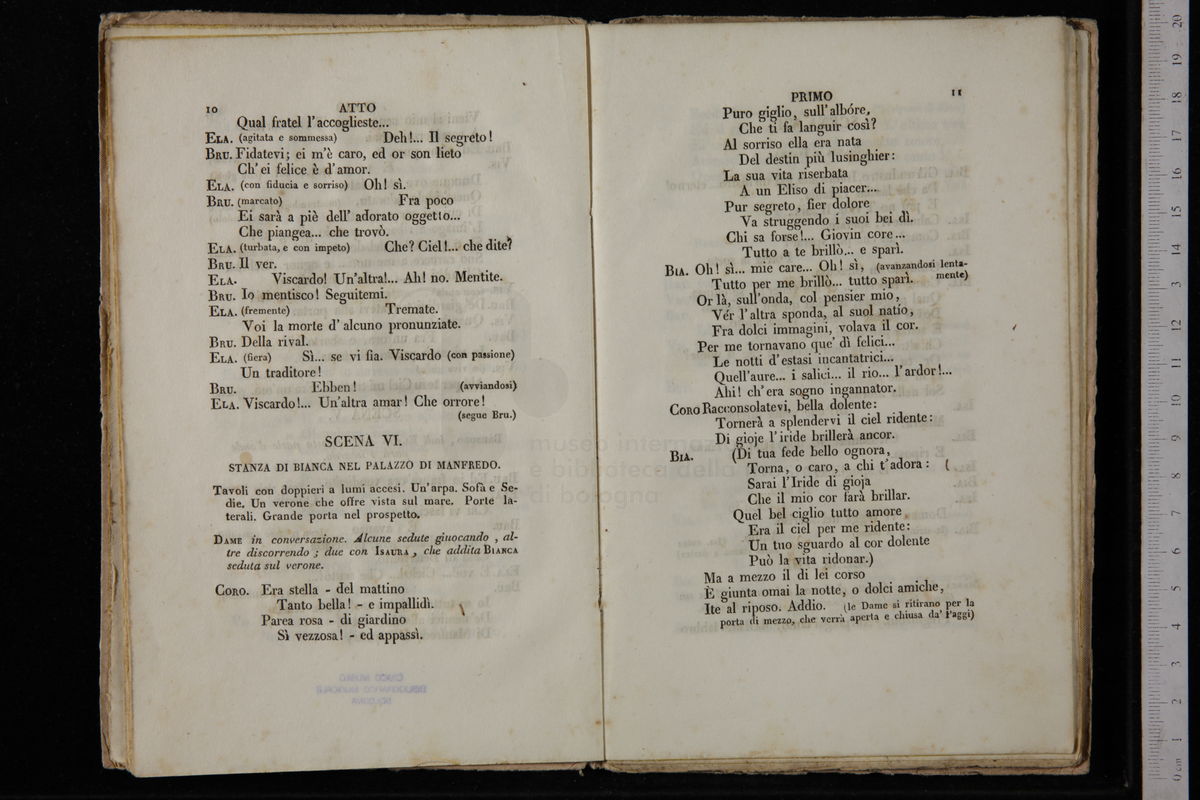 10 ATTO
Qual fratel l'accoglieste...
ELA. (agitata e sommessa) Deh!... Il segreto!
BRU. Fidatevi; ei m'è caro, ed or son lieto
Ch'ei felice è d'amor.
ELA. (con fiducia e sorriso) Oh! sì.
BRU. (marcato) Fra poco
Ei sarà a piè dell' adorato oggetto...
Che piangea... che trovò.
ELA. (turbata, e con impeto) Che? Ciel!... che dite?
BRU. Il ver.
ELA. Viscardo! Un'altra!... Ah! no. Mentite.
BRU. Io mentisco! Seguitemi.
ELA. (fremente) Tremate.
Voi la morte d'alcuno pronunziate.
BRU. Della rival.
ELA. (fiera) Sì... se vi fia. Viscardo (con passione)
Un traditore!
BRU. Ebben! (avviandosi)
ELA. Viscardo!... Un'altra amar! Che orrore!
(segue Bru.)
SCENA VI.
STANZA DI BIANCA NEL PALAZZO DI MANFREDO.
Tavoli con doppieri a lumi accesi. Un'arpa. Sofà e Se-
die. Un verone che offre vista sul mare. Porte la-
terali. Grande porta nel prospetto.
DAME in conversazione. Alcune sedute giuocando, al-
tre discorrendo; due con ISAURA, che addita BIANCA
seduta sul verone.
CORO. Era stella - del mattino
Tanto bella! - e impallidì.
Parea rosa - di giardino
Sì vezzosa! - ed appassì.
PRIMO 11
Puro giglio, sull'albóre,
Che ti fa languir così?
Al sorriso ella era nata
Del destin più lusinghier:
La sua vita riserbata
A un Eliso di piacer...
Pur segreto, fier dolore
Va struggendo i suoi bei dì.
Chi sa forse!... Giovin core...
Tutto a te brillò... e sparì.
BIA. Oh! sì... mie care... Oh! sì, (avanzandosi lenta-
Tutto per me brillò... tutto sparì. mente)
Or là, sull'onda, col pensier mio,
Vér l'altra sponda, al suol natio,
Fra dolci immagini, volava il cor.
Per me tornavano que' dì felici...
Le notti d'estasi incantatrici...
Quell'aure... i salici... il rio... l'ardor!...
Ahi! ch'era sogno ingannator.
CORO Racconsolatevi, bella dolente:
Tornerà a splendervi il ciel ridente:
Di gioje l'iride brillerà ancor.
BIA. (Di tua fede bello ognora,
Torna, o caro, a chi t'adora:
Sarai l'Iride di gioja
Che il mio cor farà brillar.
Quel bel ciglio tutto amore
Era il ciel per me ridente:
Un tuo sguardo al cor dolente
Può la vita ridonar.)
Ma a mezzo il di lei corso
È giunta omai la notte, o dolci amiche,
Ite al riposo. Addio. (le Dame si ritirano per la
porta di mezzo, che verrà aperta e chiusa da' Paggi)
museo internazionale
e biblioteca della
di bologna